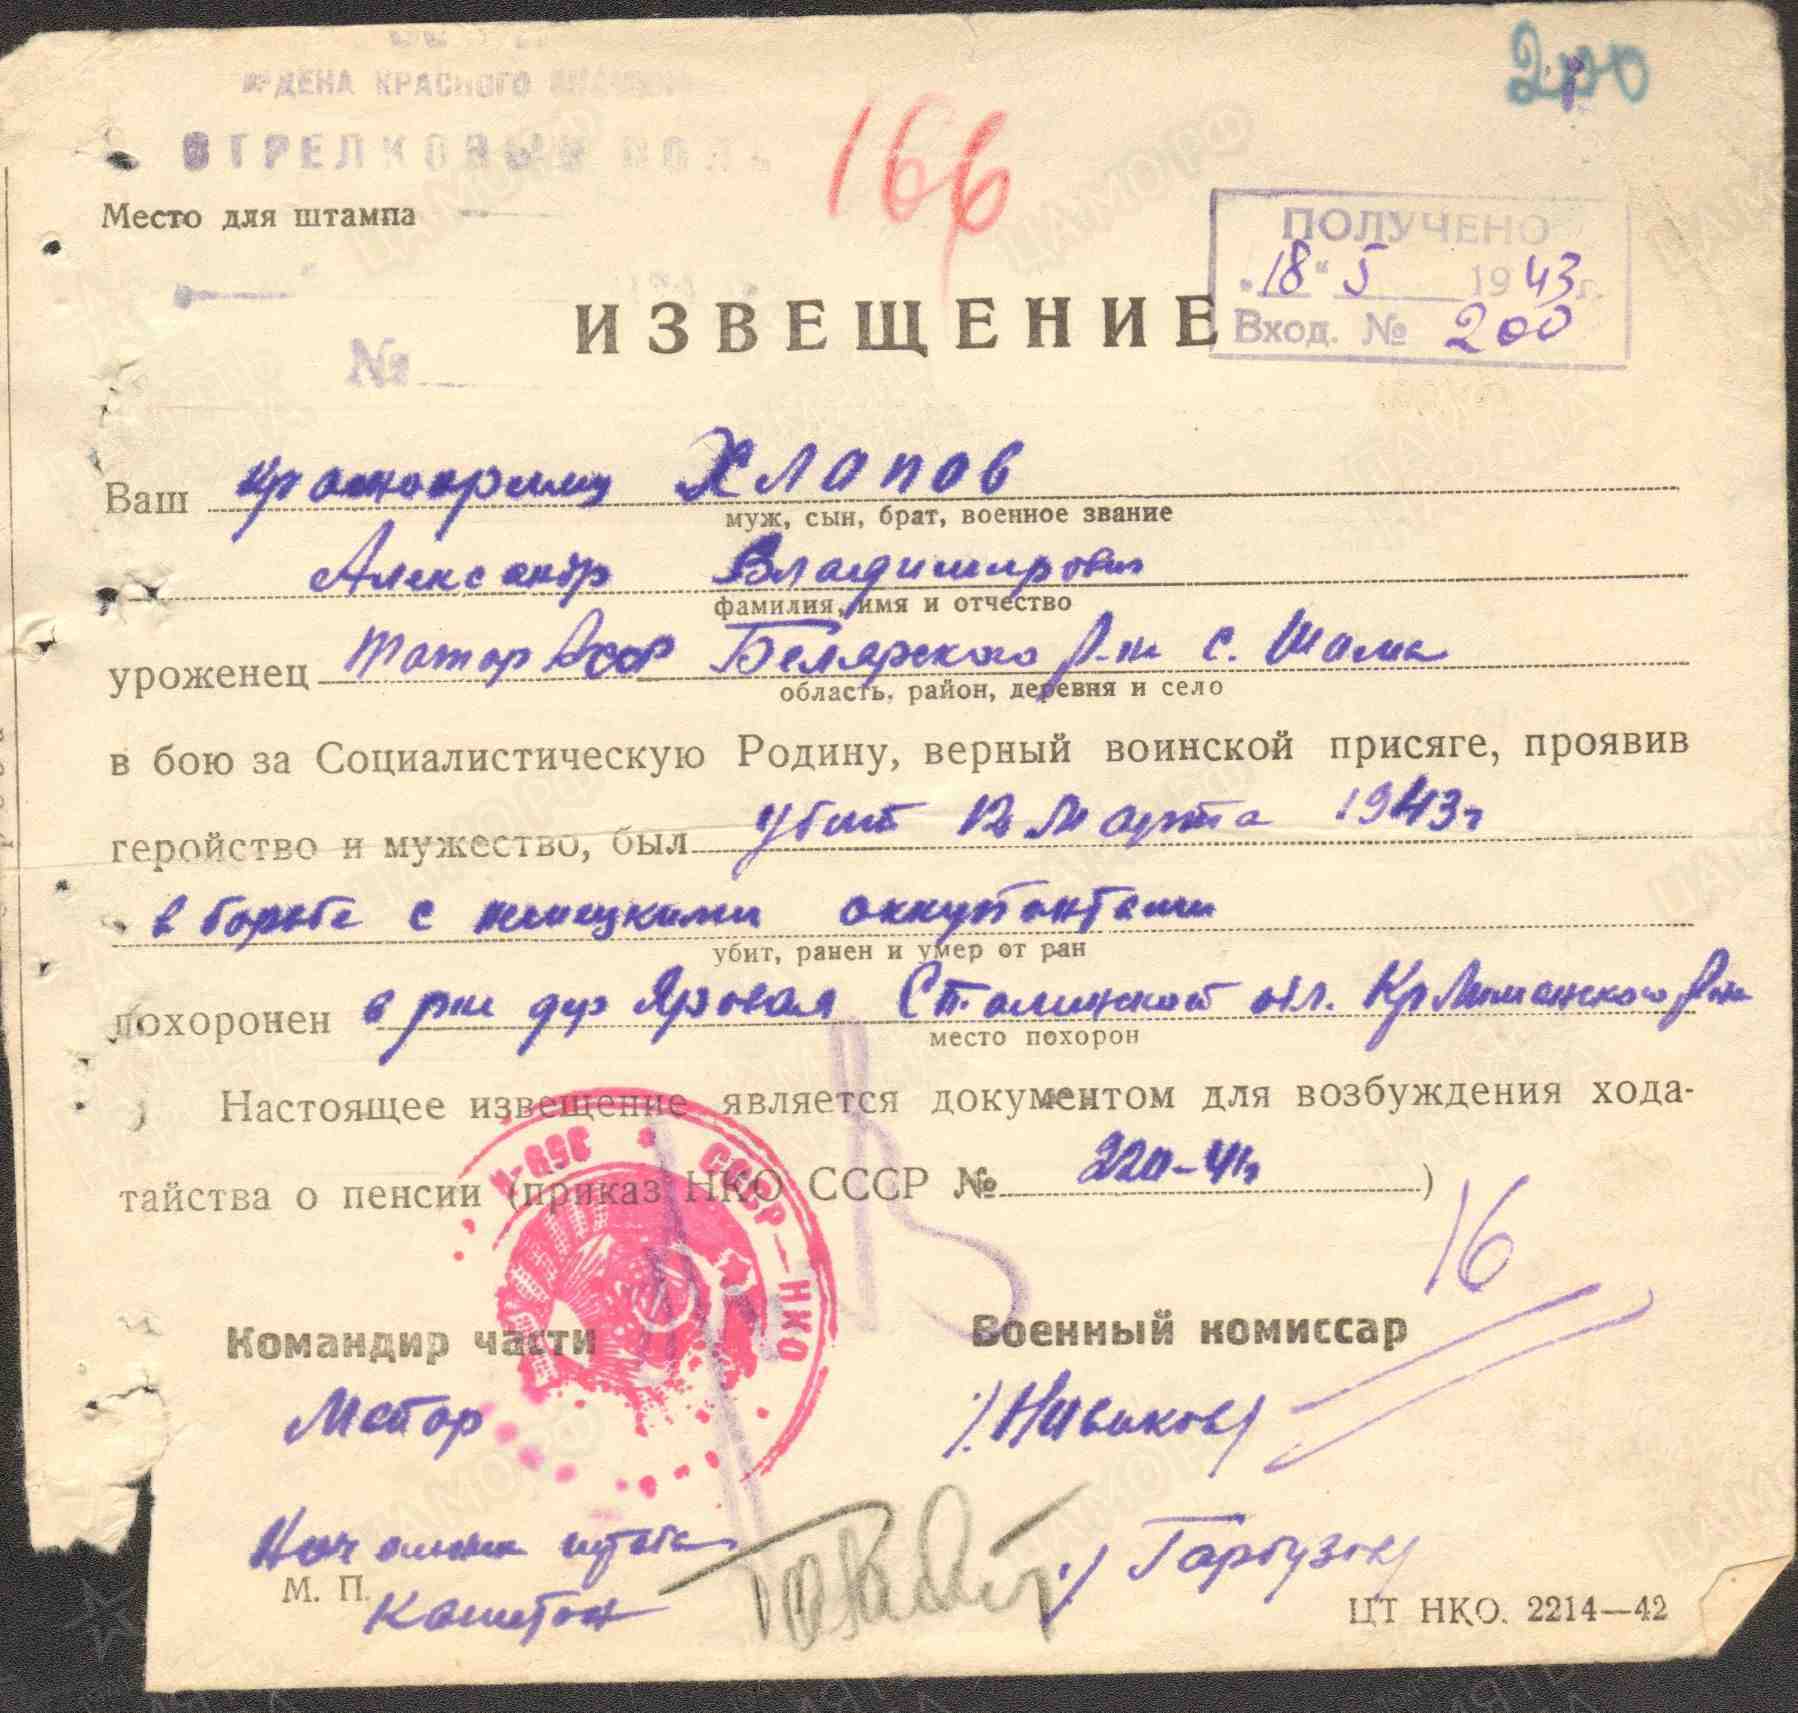 ОРДЕНА КРАСНОГО ЗНАМЕНИ
СТРЕЛКОВЫЙ ПОЛК
166
200
Место для штампа
ПОЛУЧЕНО
"18" 5 1943 г.
Вход. № 200
ИЗВЕЩЕНИЕ
№
Ваш красноармеец Хлапов
муж, сын, брат, военное звание
Александр Владимирович
фамилия, имя и отчество
уроженец Татар Асср Белярского р-на с. Шама
область, район, деревня и село
в бою за Социалистическую Родину, верный воинской присяге, проявив
геройство и мужество, был убит 12 Марта 1943 г
в борьбе с немецкими оккупантами
убит, ранен и умер от ран
похоронен в р-не дер Яровая Сталинской обл. Кр Лиманского р-на
место похорон
Настоящее извещение является документом для возбуждения хода-
тайства о пенсии (приказ НКО СССР № 220-41г)
СССР—НКО
16
Командир части
Военный комиссар
Майор
/Новиков/
Начальник штаба
М. П.
Капитан
/Гарбузов/
ЦТ НКО. 2214—42